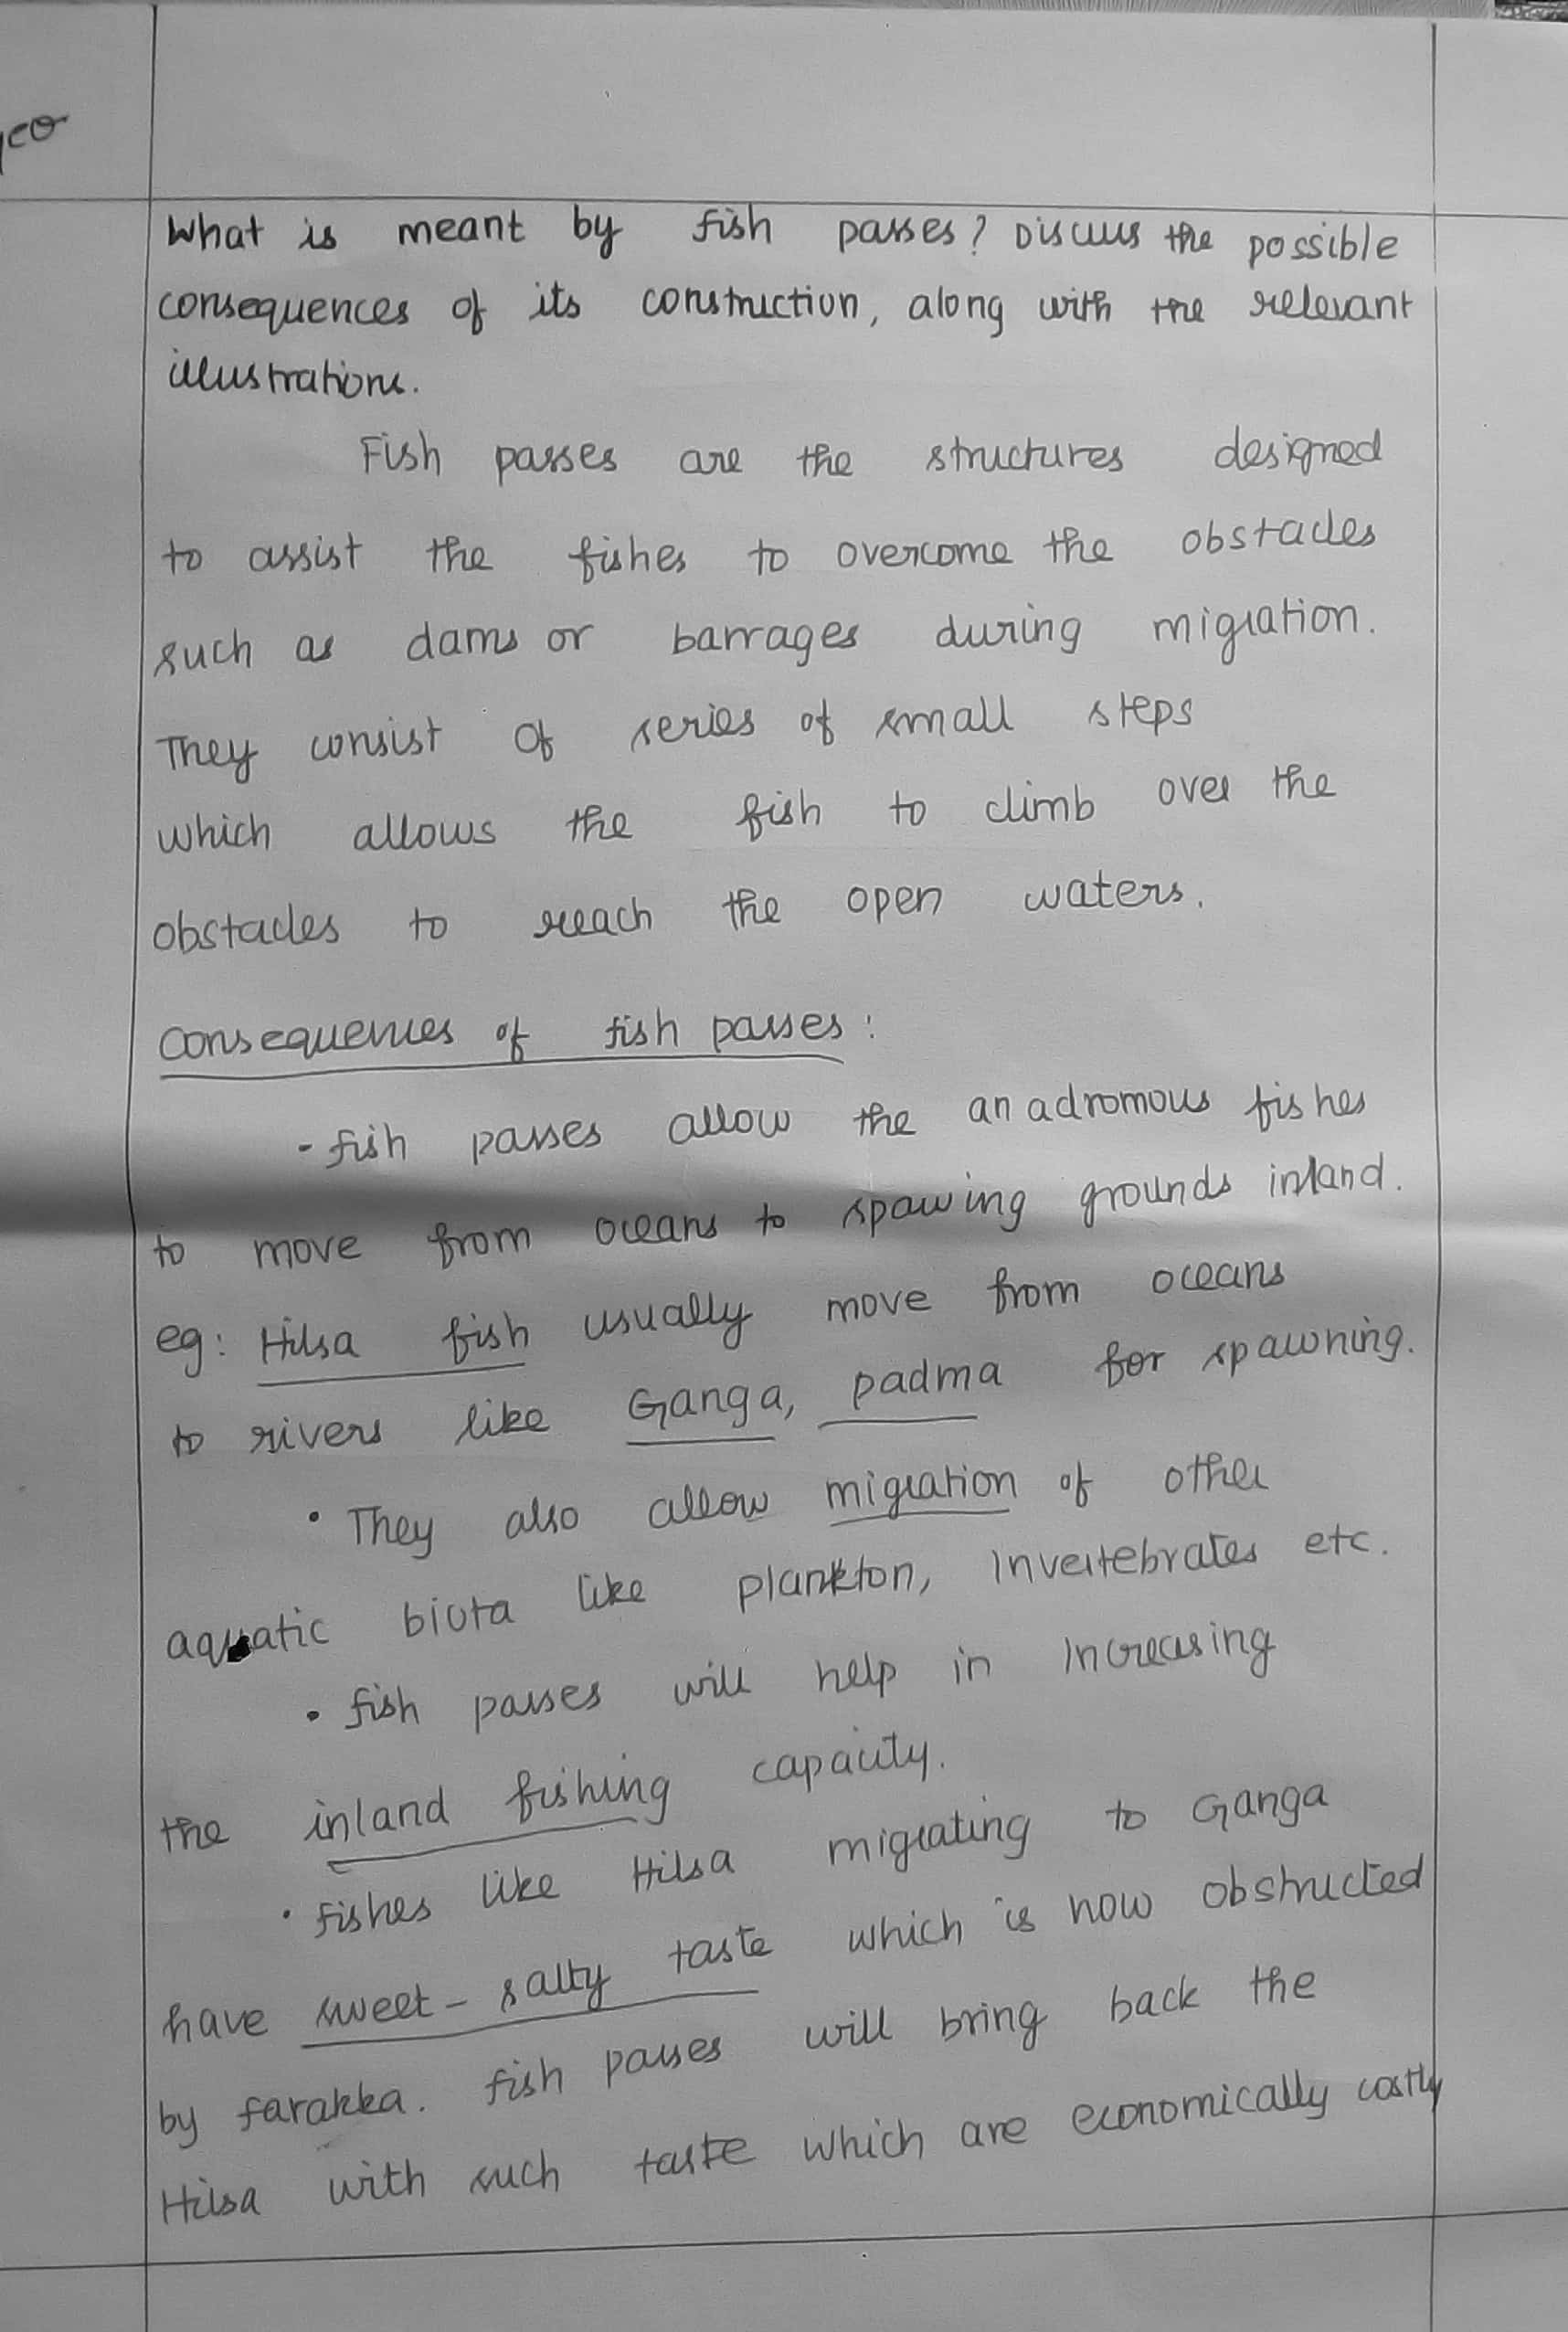 eco
What is meant by fish passes? Discuss the possible
consequences of its construction, along with the relevant
illustrations.
Fish passes are the structures designed
to assist the fishes to overcome the obstacles
such as dams or barrages during migration.
They consist of series of small steps
which allows the fish to climb over the
obstacles to reach the open waters.
Consequences of fish passes:
- fish passes allow the anadromous fishes
to move from oceans to spawing grounds inland.
eg: Hilsa fish usually move from oceans
to rivers like Ganga, padma for spawning.
• They also allow migration of other
aquatic biota like plankton, invertebrates etc.
• fish passes will help in increasing
the inland fishing capacity.
• fishes like Hilsa migrating to Ganga
have sweet - salty taste which is now obstructed
by farakka. fish passes will bring back the
Hilsa with such taste which are economically costly